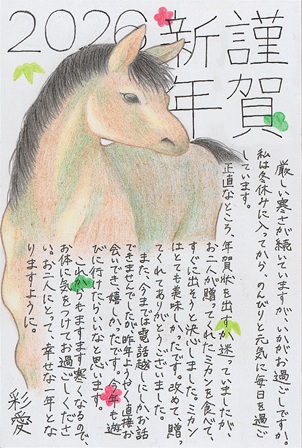 2026
謹賀
新年
厳しい寒さが続いていますがいかがお過ごしですか
私は冬休みに入ってから、のんびりと元気に毎日を過ご
しています。
正直なところ、年賀状を出すか迷っていましたが
お二人が贈ってくれたミカンを食べて
すぐに出そうと決心しました。ミカン
はとても美味しかったです。改めて、贈っ
てくれてありがとうございました。
また、今までは電話越しにしかお話
できませんでしたが昨年ようやく直接お
会いでき、嬉しかったです。今年も遊
びに行けたらいいなと思います。
これからもますます寒くなるので、
お体に気をつけてお過ごしくださ
い。お二人にとって、幸せな一年とな
りますように。
彩愛